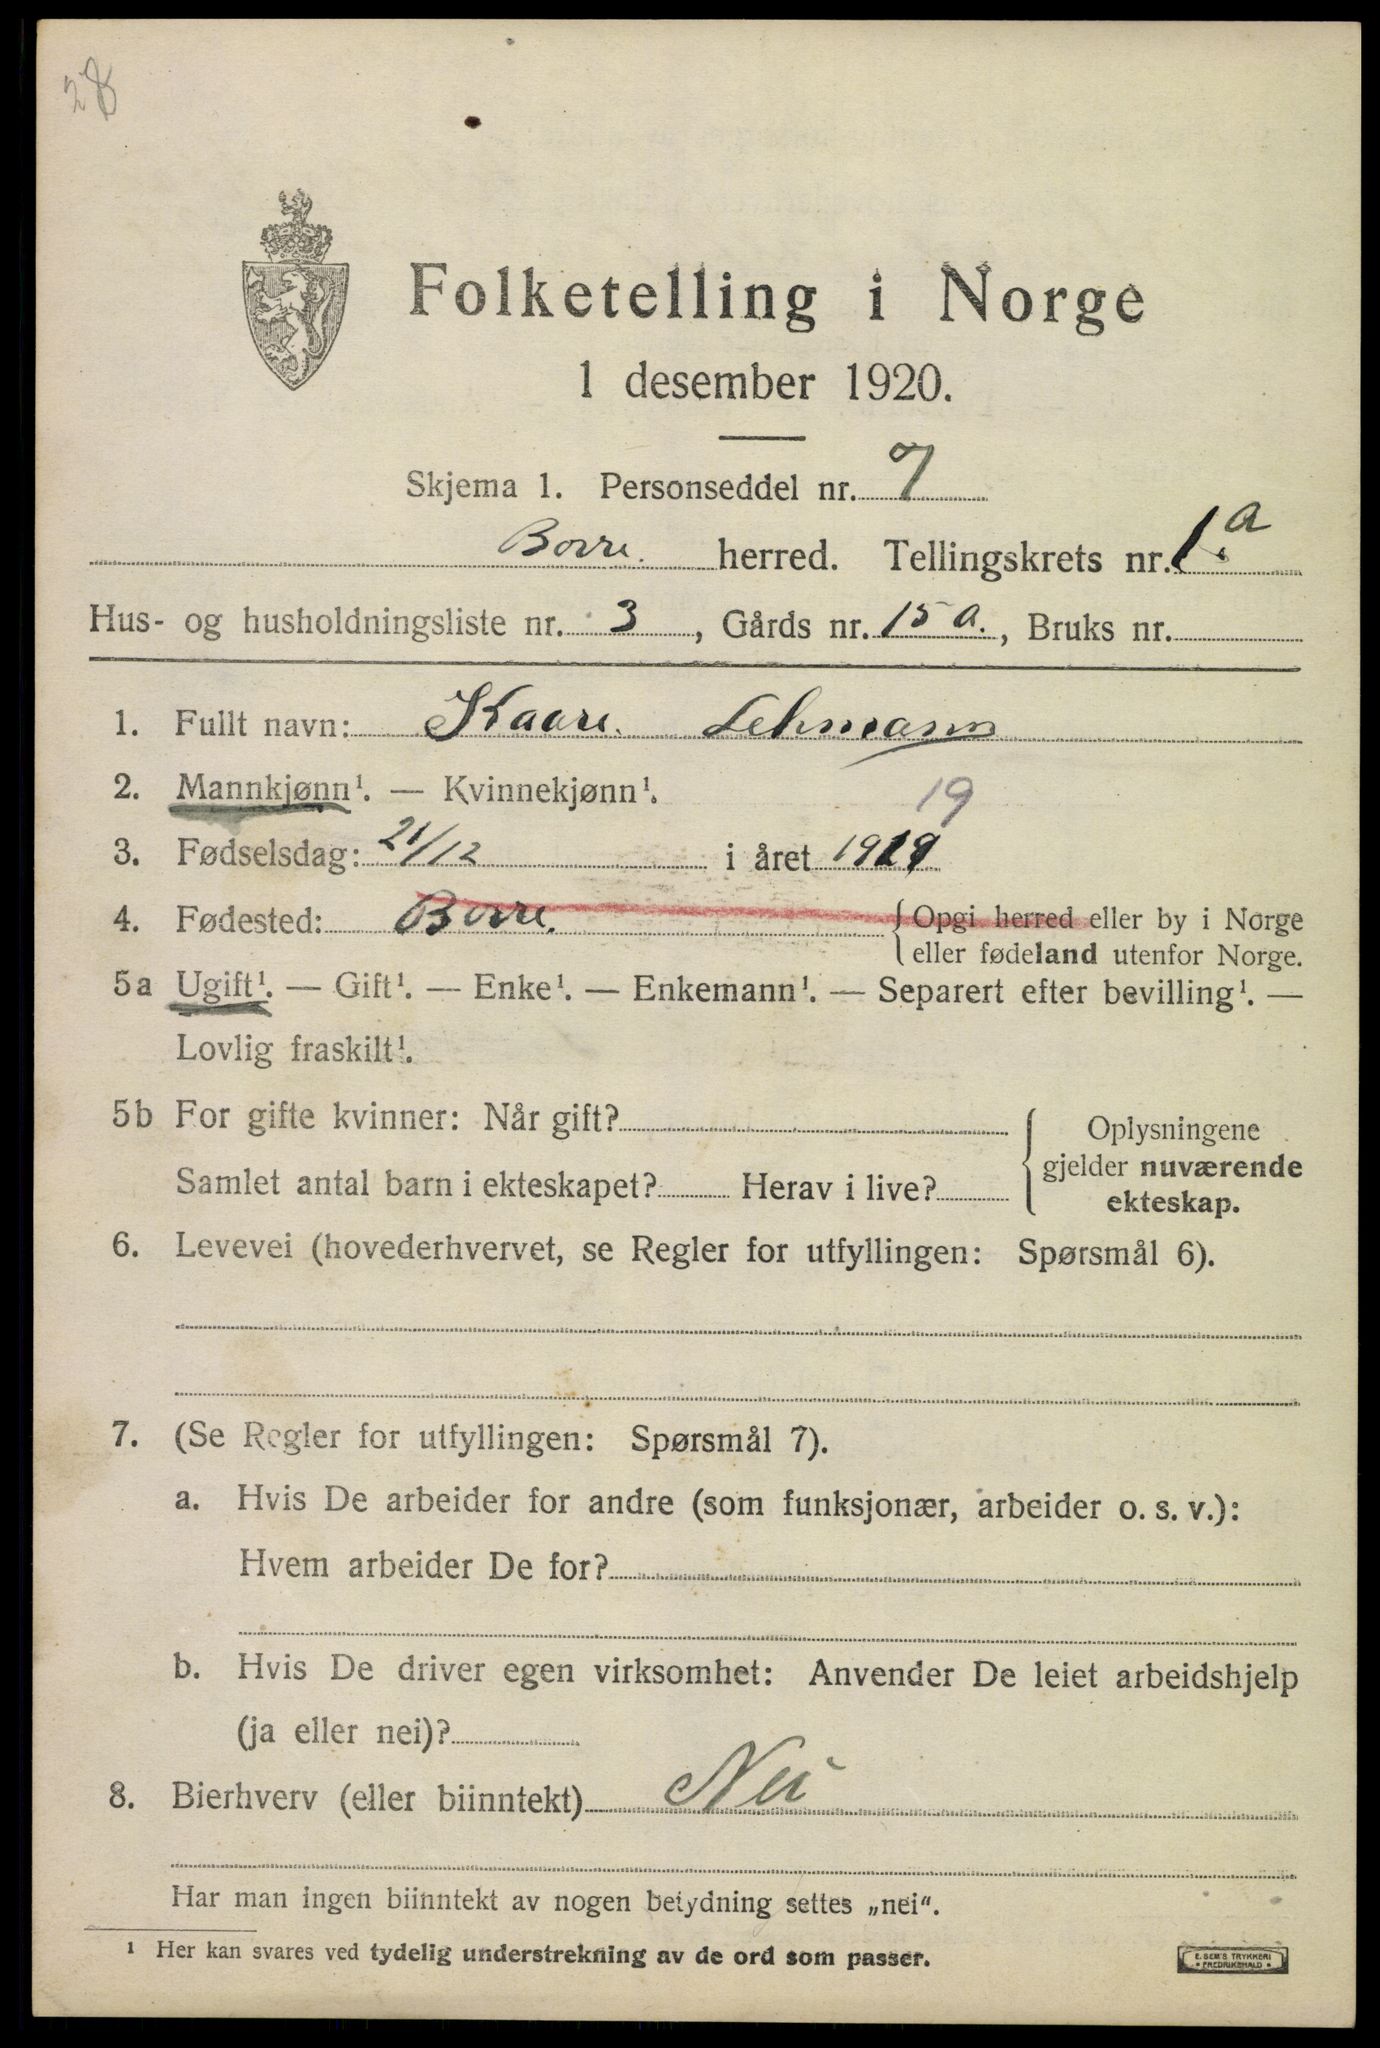 28
Folketelling i Norge
1 desember 1920.
Skjema 1. Personseddel nr. 7
Borre. herred. Tellingskrets nr. 1 a
Hus- og husholdningsliste nr. 3, Gårds nr. 15 a., Bruks nr.
1. Fullt navn: Kaare Lehmann
2. Mannkjønn¹. — Kvinnekjønn¹. 19
3. Fødselsdag: 21/12 i året 1919
4. Fødested: Borre. { Opgi herred eller by i Norge
eller fødeland utenfor Norge.
5a Ugift¹. — Gift¹. — Enke¹. — Enkemann¹. — Separert efter bevilling¹. —
Lovlig fraskilt¹.
5b For gifte kvinner: Når gift? { Oplysningene
gjelder nuværende
Samlet antal barn i ekteskapet? Herav i live? ekteskap.
6. Levevei (hovederhvervet, se Regler for utfyllingen: Spørsmål 6).
7. (Se Regler for utfyllingen: Spørsmål 7).
a. Hvis De arbeider for andre (som funksjonær, arbeider o. s. v.):
Hvem arbeider De for?
b. Hvis De driver egen virksomhet: Anvender De leiet arbeidshjelp
(ja eller nei)?
8. Bierhverv (eller biinntekt) Nei
Har man ingen biinntekt av nogen betydning settes „nei“.
¹ Her kan svares ved tydelig understrekning av de ord som passer.
E. SEM'S TRYKKERI
• FREDRIKSHALD •